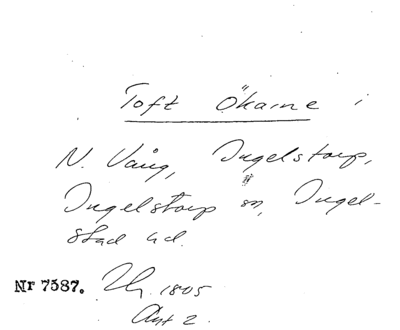 Toft Ökarne i
N. Vång, Ingelstorp,
Ingelstorp sn, Ingel-
stad hd.
Nr 7587. 1805
Akt 2.